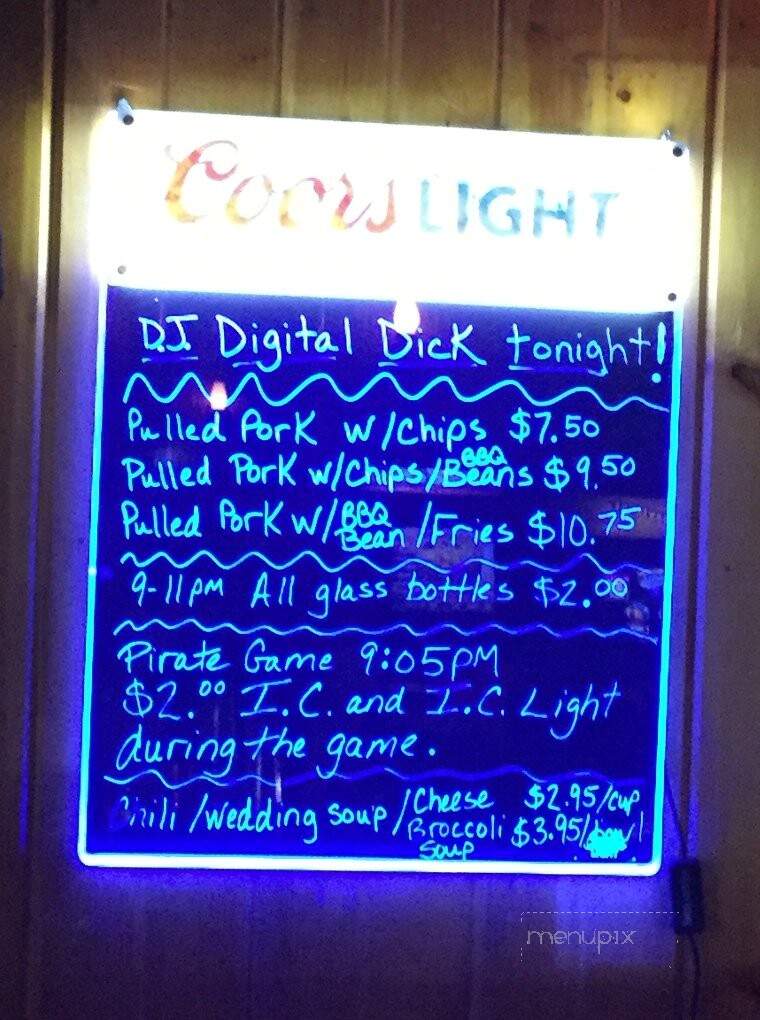 Coors LIGHT
D.J. Digital Dick tonight!
Pulled Pork w/chips $7.50
Pulled Pork w/Chips/BBQ Beans $9.50
Pulled Pork w/BBQ Bean/Fries $10.75
9-11pm All glass bottles $2.00
Pirate Game 9:05PM
$2.00 I.C. and I.C. Light
during the game.
Chili /wedding soup /Cheese Broccoli Soup $2.95/cup
$3.95/bowl
menupix